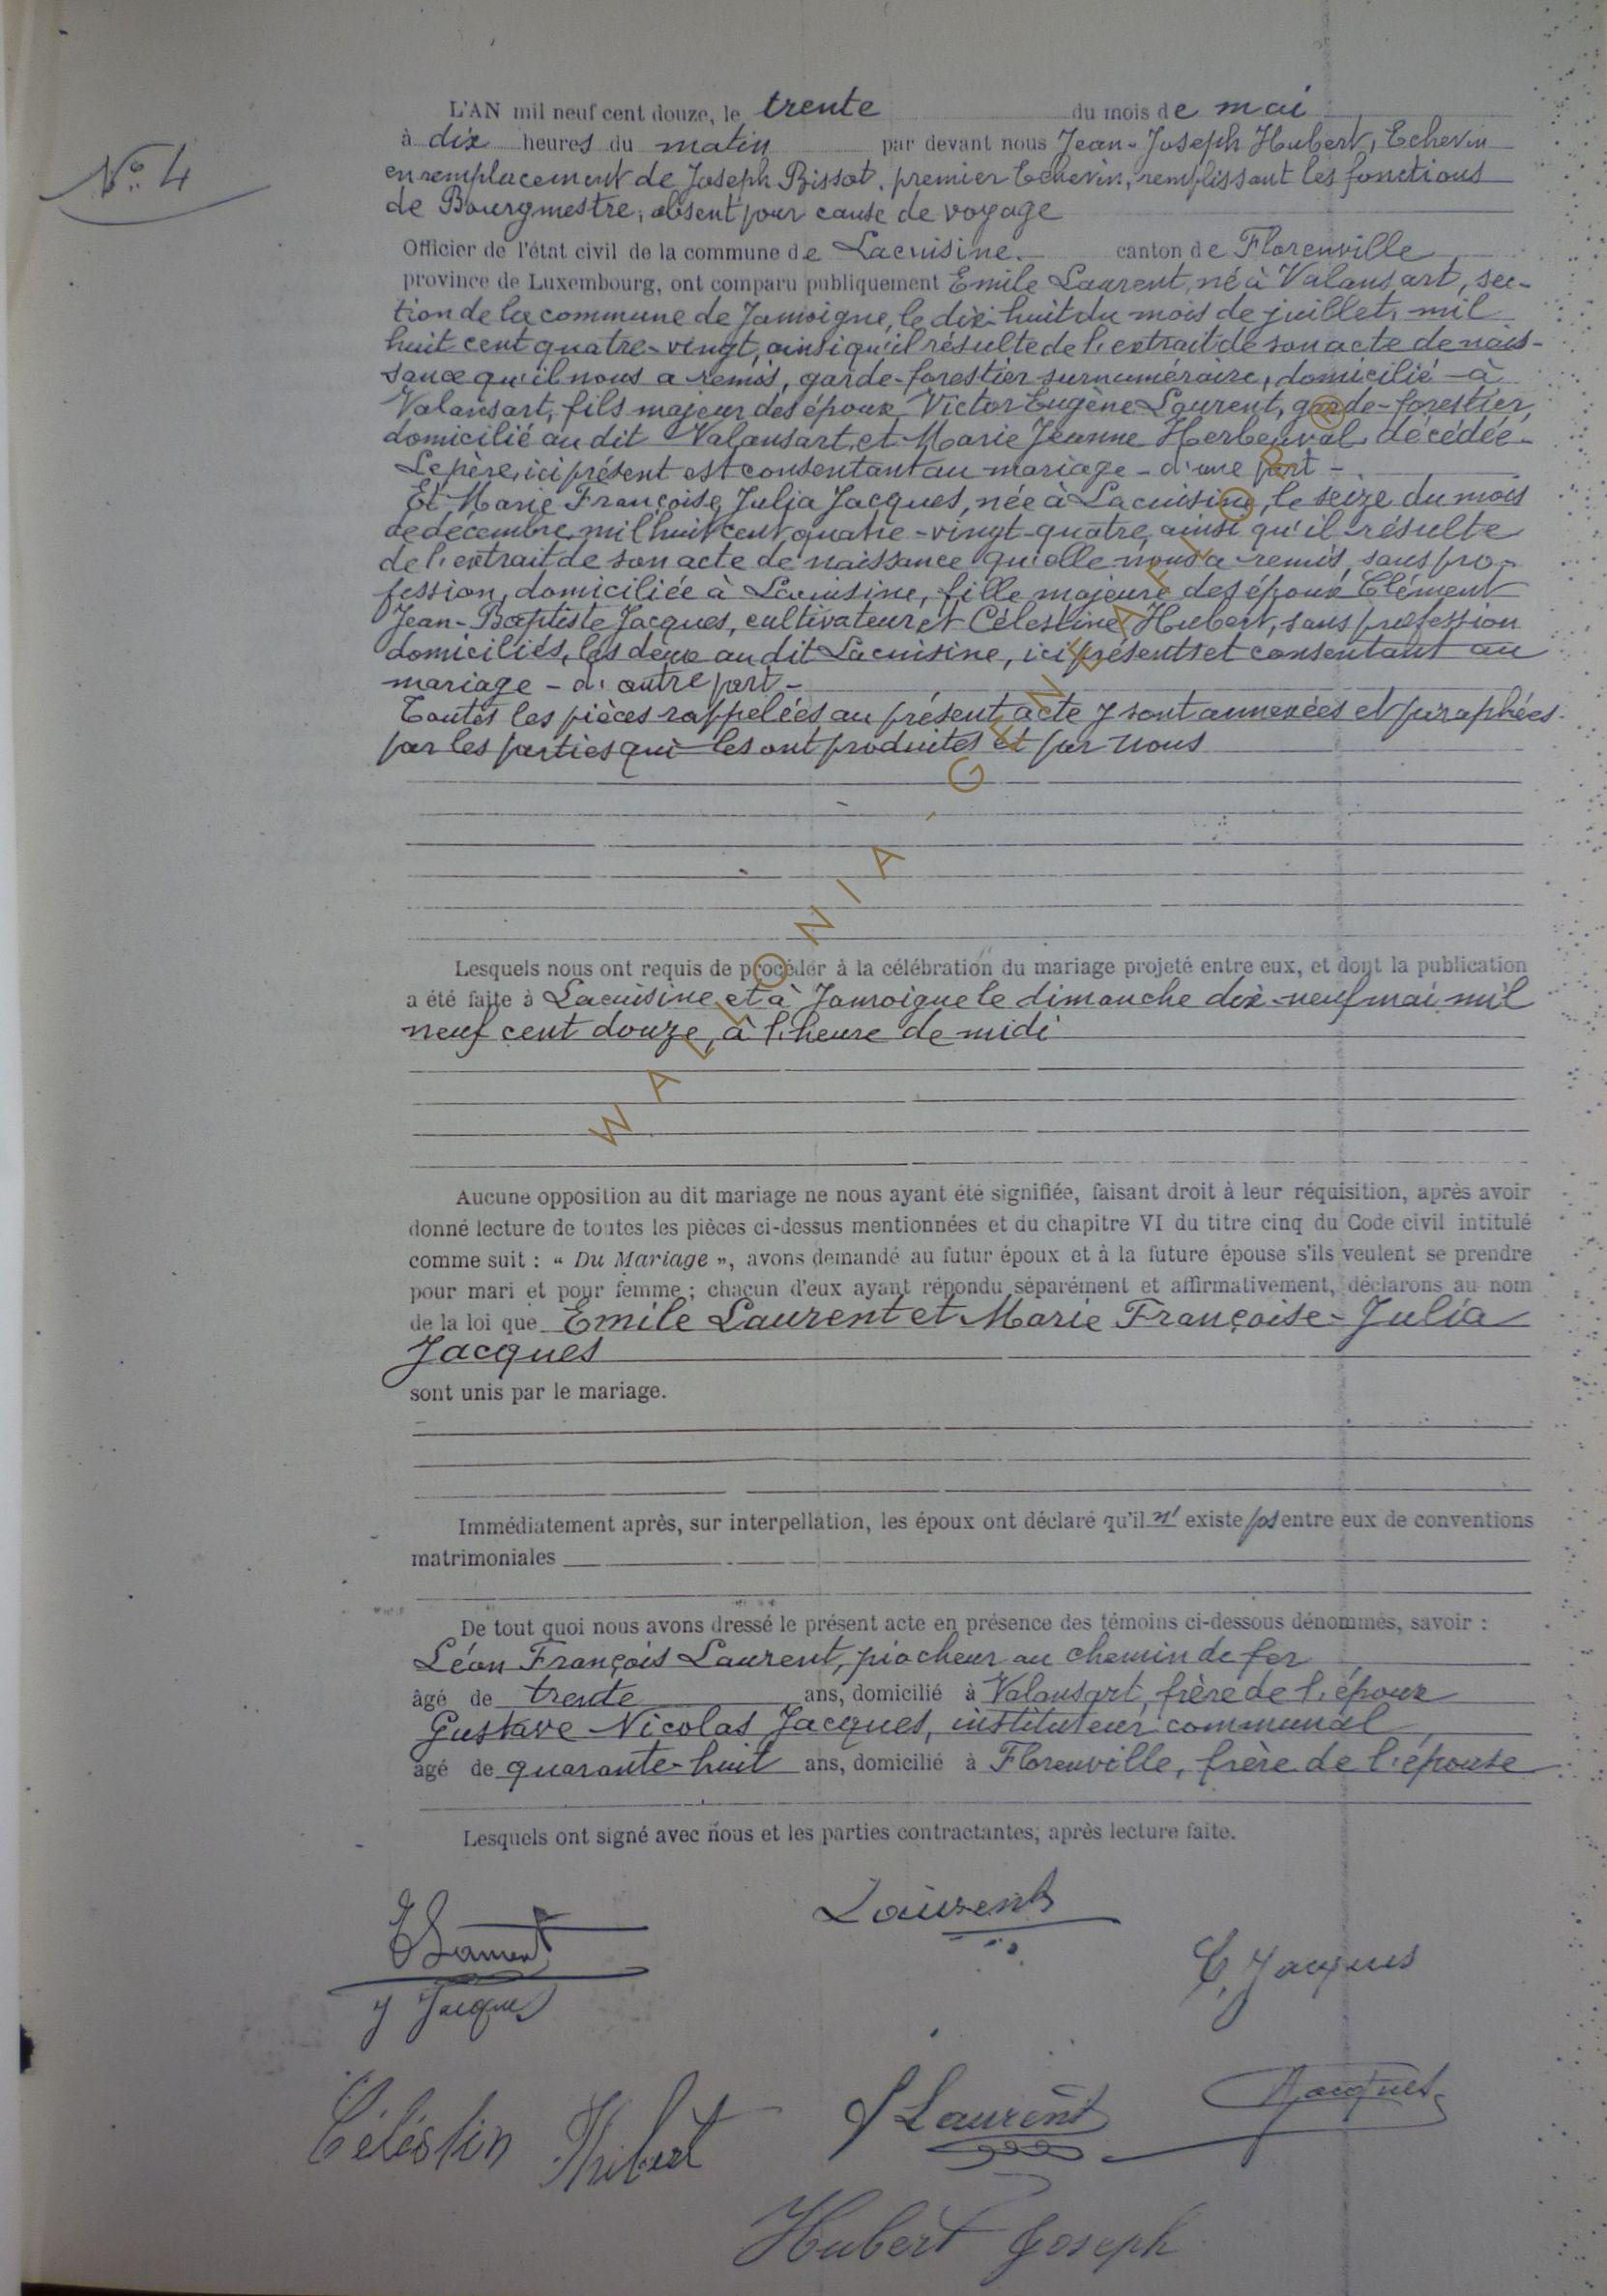 N° 4
L'AN mil neuf cent douze, le trente du mois de mai
à dix heures du matin par devant nous Jean-Joseph Hubert, Echevin
en remplacement de Joseph Bissot, premier Echevin, remplissant les fonctions
de Bourgmestre, absent pour cause de voyage
Officier de l'état civil de la commune de Lacuisine. canton de Florenville
province de Luxembourg, ont comparu publiquement Emile Laurent, né à Valansart, sec-
tion de la commune de Jamoigne, le dix-huit du mois de juillet, mil
huit cent quatre-vingt, ainsi qu'il résulte de l'extrait de son acte de nais-
sance qu'il nous a remis, garde-forestier surnuméraire, domicilié à
Valansart, fils majeur des époux Victor Eugène Laurent, garde-forestier,
domicilié au dit Valansart, et Marie Jeanne Herbeuval décédée.
Le père, ici présent est consentant au mariage - d'une part -
Et Marie Françoise Julia Jacques, née à Lacuisine, le seize du mois
de decembre, mil huit cent quatre-vingt-quatre, ainsi qu'il résulte
de l'extrait de son acte de naissance qu'elle nous a remis, sans pro-
fession, domiciliée à Lacuisine, fille majeure des époux Clément
Jean-Baptiste Jacques, cultivateur et Célestine Hubert, sans profession
domiciliés, les deux au dit Lacuisine, ici présents et consentant au
mariage - d'autre part -
Toutes les pièces rappelées au présent acte y sont annexées et paraphées
par les parties qui les ont produites et par nous
WALLONIA - GENEALOR
Lesquels nous ont requis de procéder à la célébration du mariage projeté entre eux, et dont la publication
a été faite à Lacuisine et à Jamoigne le dimanche dix-neuf mai mil
neuf cent douze, à l'heure de midi
Aucune opposition au dit mariage ne nous ayant été signifiée, faisant droit à leur réquisition, après avoir
donné lecture de toutes les pièces ci-dessus mentionnées et du chapitre VI du titre cinq du Code civil intitulé
comme suit : « Du Mariage », avons demandé au futur époux et à la future épouse s'ils veulent se prendre
pour mari et pour femme ; chacun d'eux ayant répondu séparément et affirmativement, déclarons au nom
de la loi que Emile Laurent et Marie Françoise-Julia
Jacques
sont unis par le mariage.
Immédiatement après, sur interpellation, les époux ont déclaré qu'il n' existe pas entre eux de conventions
matrimoniales
De tout quoi nous avons dressé le présent acte en présence des témoins ci-dessous dénommés, savoir :
Léon François Laurent, piocheur au chemin de fer
âgé de trente ans, domicilié à Valansart, frère de l'époux
Gustave Nicolas Jacques, instituteur communal
âgé de quarante-huit ans, domicilié à Florenville, frère de l'épouse
Lesquels ont signé avec nous et les parties contractantes, après lecture faite.
E Laurent
Laurent
C. Jacques
J Jacques
Célestin Hubert
L Laurent
Jacques
Hubert Joseph